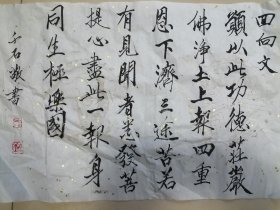 回向文
願以此功德莊嚴
佛淨土上報四重
恩下濟三途苦若
有見聞者悉發菩
提心盡此一報身
同生極樂國
千石敬書